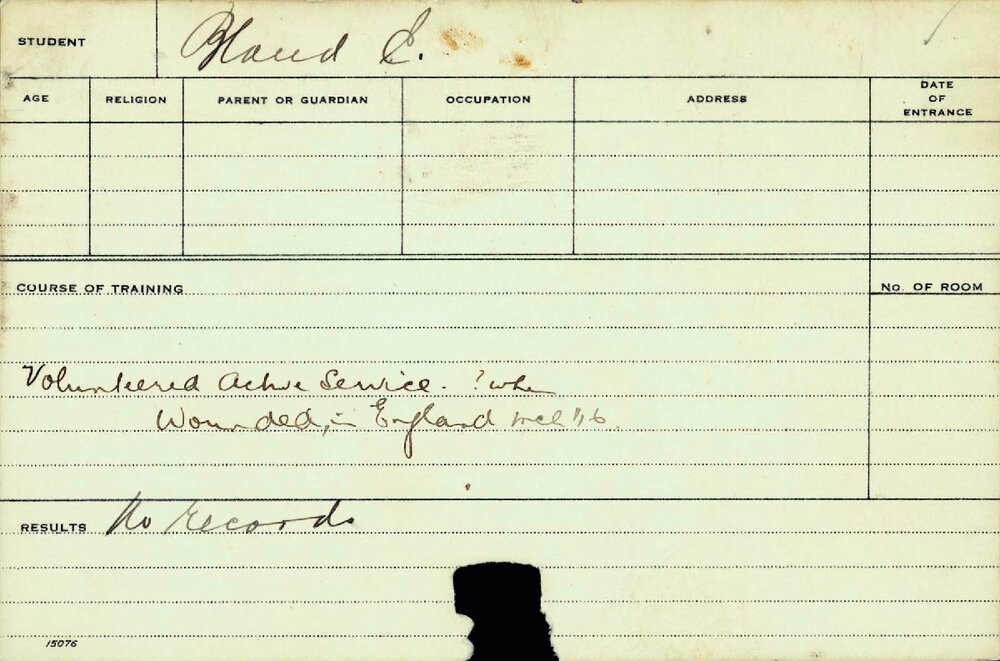 STUDENT Bland E.
AGE RELIGION PARENT OR GUARDIAN OCCUPATION ADDRESS DATE OF ENTRANCE
COURSE OF TRAINING No. OF ROOM
Volunteered Active Service. ? when
Wounded, in England
RESULTS No records
15076